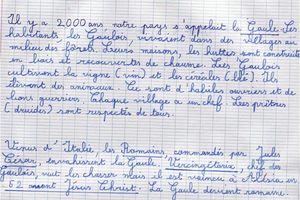 Il y a 2000 ans notre pays s'appelait la Gaule. Les
habitants les Gaulois vivaient dans des villages au
milieu des forêts. Leurs maisons, les huttes sont construites
en bois et recouvertes de chaume. Les Gaulois
cultivent la vigne (vin) et les céréales (blé). Ils
élèvent des animaux. Ce sont d'habiles ouvriers et de
bons guerriers. Chaque village a un chef. Les prêtres
(druides) sont respectés de tous.
Venus d'Italie les Romains, commandés par Jules
César, envahissent la Gaule. Vercingétorix,
gaulois, veut les chasser mais il est vaincu à Alésia en
52 avant Jésus Christ. La Gaule devient romaine.